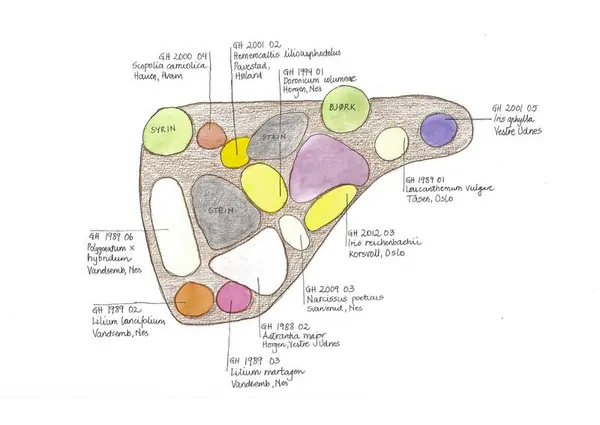 GH 2000 04
Scopolia carniolica
Haugen, Hvam
GH 2001 02
Hemerocallis lilioasphodelus
Puvestad,
Høland
GH 1994 01
Doronicum columnae
Horgen, Nes
SYRIN
STEIN
BJØRK
GH 2001 05
Iris aphylla
Vestre Udnes
GH 1989 01
Leucanthemum vulgare
Tåsen, Oslo
STEIN
GH 1989 06
Polygonatum x
hybridum
Vandsemb, Nes
GH 2012 03
Iris reichenbachii
Korsvoll, Oslo
GH 2009 03
Narcissus poeticus
Svarverud, Nes
GH 1989 02
Lilium lancifolium
Vandsemb, Nes
GH 1988 02
Astrantia major
Horgen, Vestre Udnes
GH 1989 03
Lilium martagon
Vandsemb, Nes